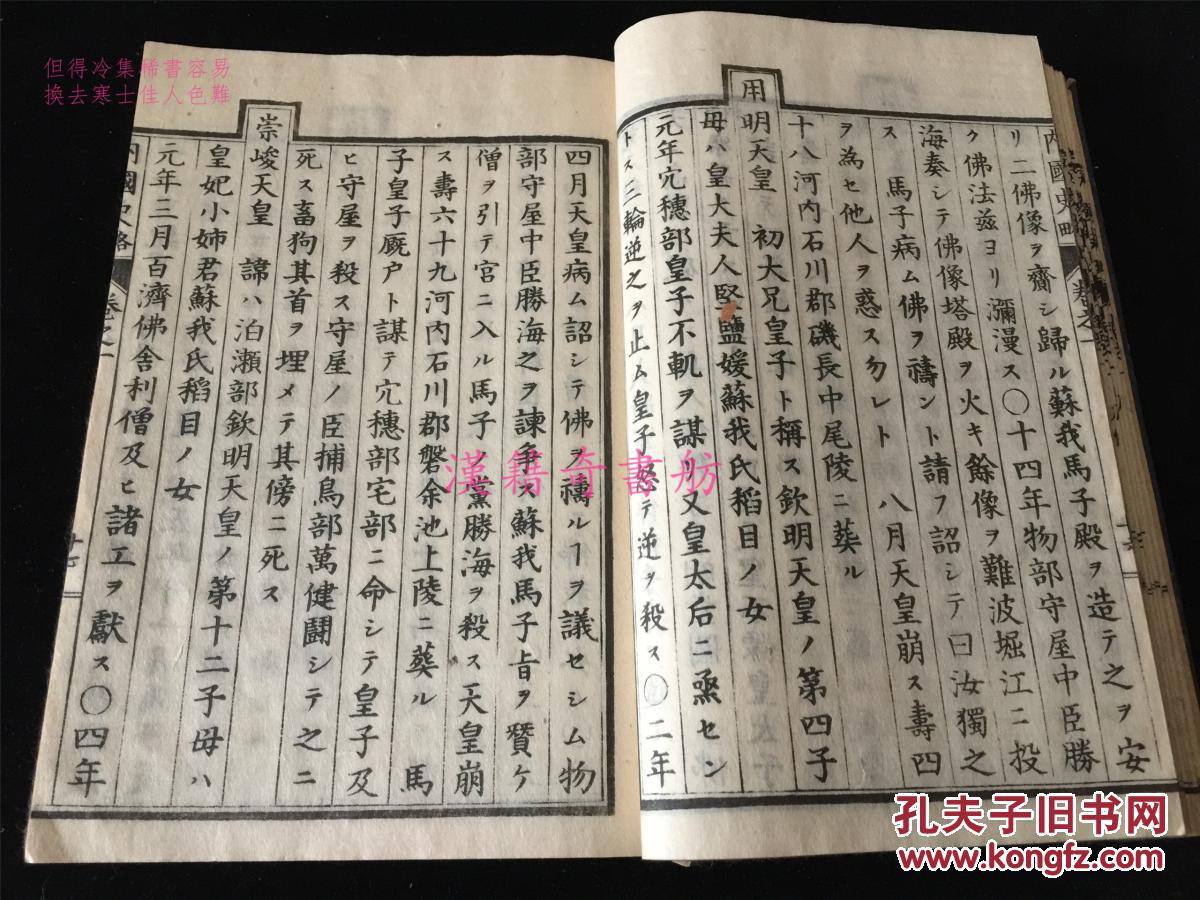 但得冷集稀書容易
換去寒士佳人色難
內國史略 卷之一
リ二佛像ヲ齎シ歸ル蘇我馬子殿ヲ造テ之ヲ安
ク佛法茲ヨリ瀰漫ス〇十四年物部守屋中臣勝
海奏シテ佛像塔殿ヲ火キ餘像ヲ難波堀江ニ投
ス 馬子病ム佛ヲ禱ント請フ詔シテ曰汝獨之
ヲ為セ他人ヲ惑ス勿レト 八月天皇崩ス壽四
十八河內石川郡磯長中尾陵ニ葬ル
用明天皇 初大兄皇子ト稱ス欽明天皇ノ第四子
母ハ皇大夫人堅鹽媛蘇我氏稻目ノ女
元年穴穗部皇子不軌ヲ謀リ又皇太后ニ烝セン
トス三輪逆之ヲ止ム皇子怒テ逆ヲ殺ス〇二年
四月天皇病ム詔シテ佛ヲ禱ルヿヲ議セシム物
部守屋中臣勝海之ヲ諫爭ス蘇我馬子旨ヲ贊ケ
僧ヲ引テ宮ニ入ル馬子ノ黨勝海ヲ殺ス天皇崩
ス壽六十九河內石川郡磐余池上陵ニ葬ル 馬
子皇子厩戶ト謀テ穴穗部宅部ニ命シテ皇子及
ヒ守屋ヲ殺ス守屋ノ臣捕鳥部萬健鬪シテ之ニ
死ス畜狗其首ヲ埋メテ其傍ニ死ス
崇峻天皇 諱ハ泊瀨部欽明天皇ノ第十二子母ハ
皇妃小姉君蘇我氏稻目ノ女
元年三月百濟佛舍利僧及ヒ諸工ヲ獻ス〇四年
內國史略 卷之一 十七
漢籍奇書舫
孔夫子旧书网
www.kongfz.com